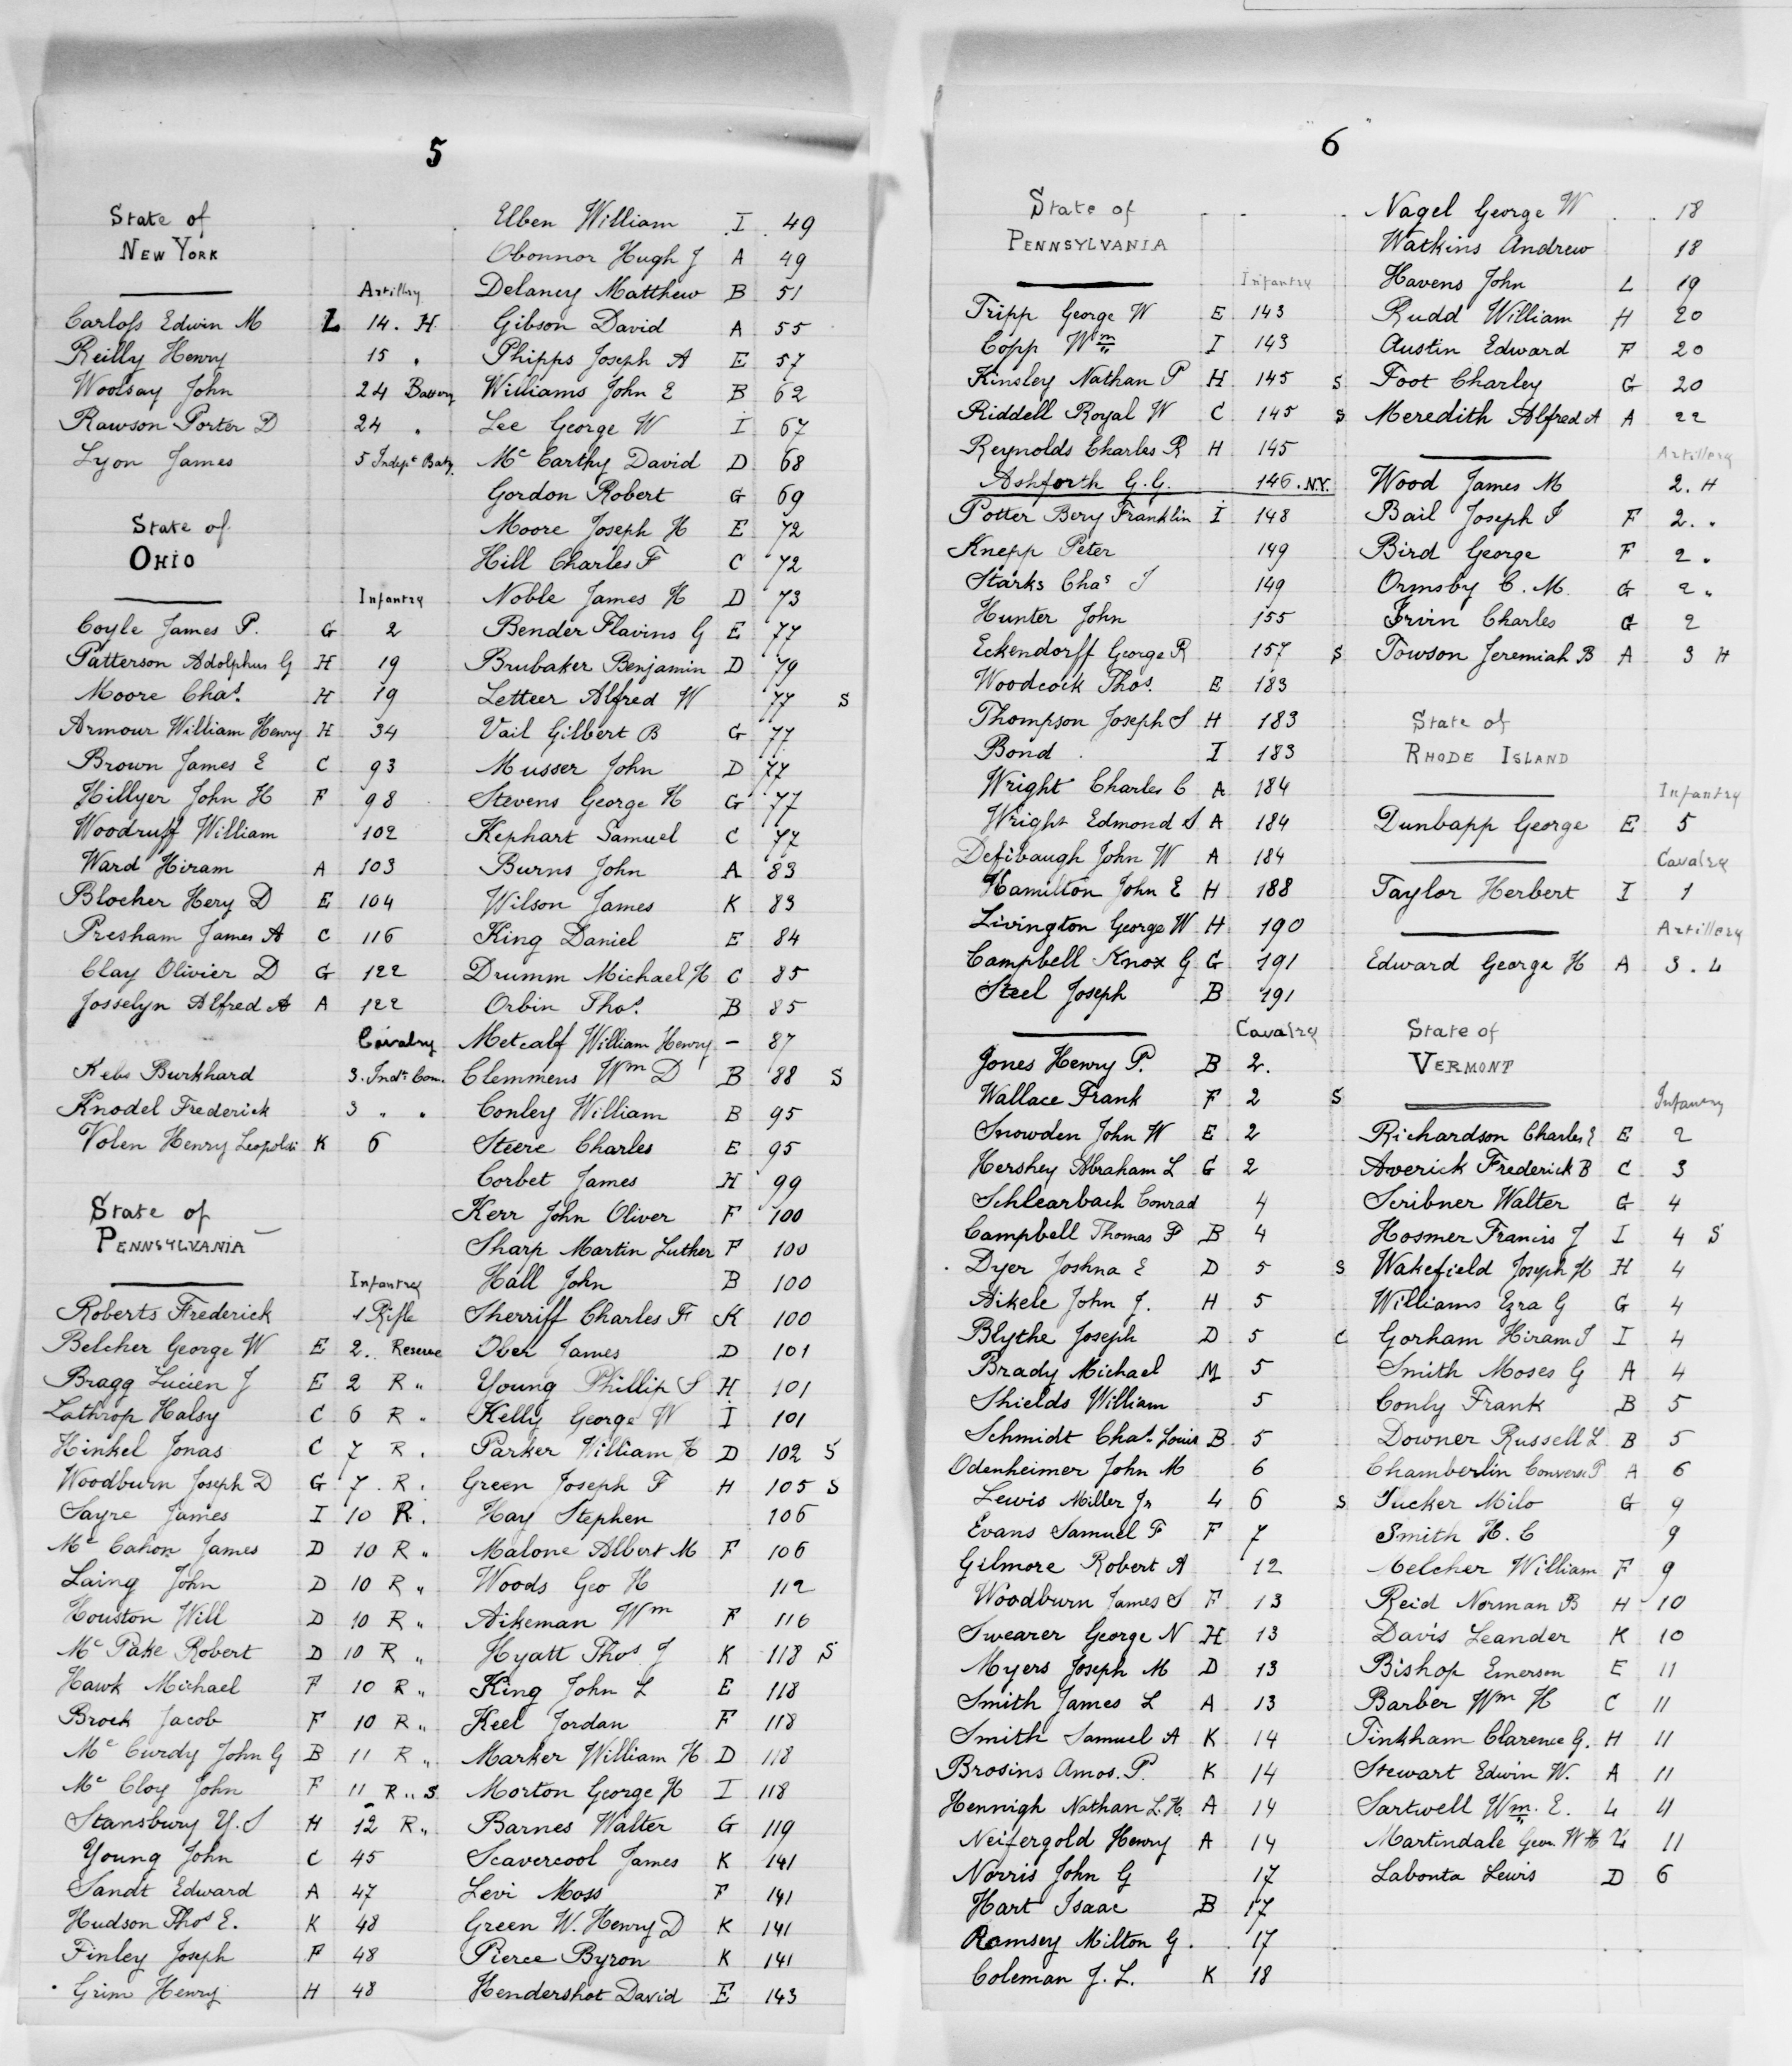 5
State of
NEW YORK
Artillery
Carloss Edwin M L 14. H.
Reilly Henry 15 "
Woolsay John 24 Battery
Rawson Porter D 24 "
Lyon James 5 Indept Baty.
State of
OHIO
Infantry
Coyle James P. G 2
Patterson Adolphus G H 19
Moore Chas. H 19
Armour William Henry H 34
Brown James E C 93
Hillyer John H F 98
Woodruff William 102
Ward Hiram A 103
Blocher Hery D E 104
Presham James A C 116
Clay Olivier D G 122
Josselyn Alfred A A 122
Cavalry
Kebs Burkhard 3. Indt Com.
Knodel Frederick 3 " "
Volen Henry Leopold K 6
State of
PENNSYLVANIA
Infantry
Roberts Frederick 1 Rifle
Belcher George W E 2. Reserve
Bragg Lucien J E 2 R "
Lathrop Halsy C 6 R "
Hinkel Jonas C 7 R.
Woodburn Joseph D G 7. R.
Sayre James I 10 R.
Mc Cahon James D 10 R "
Laing John D 10 R "
Houston Will D 10 R "
Mc Pake Robert D 10 R "
Hawk Michael F 10 R "
Brock Jacob F 10 R "
Mc Curdy John G B 11 R "
Mc Cloy John F 11 R " S
Stansbury Y. S H 12 R "
Young John C 45
Sandt Edward A 47
Hudson Thos E. K 48
Finley Joseph F 48
Grim Henry H 48
Elben William I 49
Obonnor Hugh J A 49
Delaney Matthew B 51
Gibson David A 55
Phipps Joseph A E 57
Williams John E B 62
Lee George W I 67
Mc Carthy David D 68
Gordon Robert G 69
Moore Joseph H E 72
Hill Charles F C 72
Noble James H D 73
Bender Flavins G E 77
Brubaker Benjamin D 79
Letteer Alfred W 77 S
Vail Gilbert B G 77
Musser John D 77
Stevens George H G 77
Kephart Samuel C 77
Burns John A 83
Wilson James K 83
King Daniel E 84
Drumm Michael H C 85
Orbin Thos. B 85
Metcalf William Henry – 87
Clemmens Wm D B 88 S
Conley William B 95
Steere Charles E 95
Corbet James H 99
Kerr John Oliver F 100
Sharp Martin Luther F 100
Hall John B 100
Sherriff Charles F K 100
Ober James D 101
Young Phillip S H 101
Kelly George W I 101
Parker William H D 102 S
Green Joseph F H 105 S
Hay Stephen 106
Malone Albert M F 106
Woods Geo H 112
Aikeman Wm F 116
Hyatt Thos J K 118 S
King John L E 118
Keel Jordan F 118
Marker William H D 118
Morton George H I 118
Barnes Walter G 119
Scavercool James K 141
Levi Moss F 141
Green W. Henry D K 141
Pierce Byron K 141
Hendershot David E 143
6
State of
PENNSYLVANIA
Infantry
Tripp George W E 143
Copp Wm I 143
Kinsley Nathan P H 145 S
Riddell Royal W C 145 S
Reynolds Charles R H 145
Ashforth G. G. 146. N.Y.
Potter Bery Franklin I 148
Knepp Peter 149
Starks Chas J 149
Hunter John 155
Eckendorff George R 157 S
Woodcock Thos. E 183
Thompson Joseph S H 183
Bond I 183
Wright Charles C A 184
Wright Edmond S A 184
Defibaugh John W A 184
Hamilton John E H 188
Livington George W H 190
Campbell Knox G G 191
Steel Joseph B 191
Cavalry
Jones Henry P. B 2.
Wallace Frank F 2 S
Snowden John W E 2
Hershey Abraham L G 2
Schlearbach Conrad 4
Campbell Thomas F B 4
Dyer Joshna E D 5 S
Aikele John J. H 5
Blythe Joseph D 5 C
Brady Michael M 5
Shields William 5
Schmidt Chas. Louis B 5
Odenheimer John M 6
Lewis Miller Jr L 6 S
Evans Samuel F F 7
Gilmore Robert A 12
Woodburn James S F 13
Swearer George N H 13
Myers Joseph M D 13
Smith James L A 13
Smith Samuel A K 14
Brosins Amos. P. K 14
Hennigh Nathan L. H. A 14
Neifergold Henry A 14
Norris John G 17
Hart Isaac B 17
Ramsey Milton G. 17
Coleman J. L. K 18
Nagel George W 18
Watkins Andrew 18
Havens John L 19
Rudd William H 20
Austin Edward F 20
Foot Charley G 20
Meredith Alfred A A 22
Artillery
Wood James M 2. H
Bail Joseph J F 2. "
Bird George F 2 "
Ormsby C. M. G 2 "
Irvin Charles G 2
Towson Jeremiah B A 3 H
State of
RHODE ISLAND
Infantry
Dunbapp George E 5
Cavalry
Taylor Herbert I 1
Artillery
Edward George H A 3. L
State of
VERMONT
Infantry
Richardson Charles E E 2
Averick Frederick B C 3
Scribner Walter G 4
Hosmer Francis J I 4 S
Wakefield Joseph H H 4
Williams Ezra G G 4
Gorham Hiram J I 4
Smith Moses G A 4
Conly Frank B 5
Downer Russell L B 5
Chamberlin Converse P A 6
Tucker Milo G 9
Smith H. C 9
Melcher William F 9
Reid Norman B H 10
Davis Leander K 10
Bishop Emerson E 11
Barber Wm H C 11
Tinkham Clarence G. H 11
Stewart Edwin W. A 11
Sartwell Wm. E. L 11
Martindale Geo. W 11
Labonta Lewis D 6